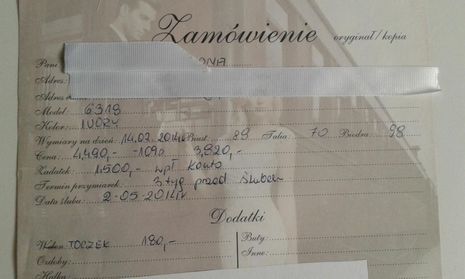 Zamówienie oryginał/kopia
Pani
Adres:
Adres
Model: 6318
Kolor: IVORY
Wymiary na dzień: 14.02.2014r Biust: 89 Talia: 70 Biodra: 98
Cena: 4.490,- -10% 3.820,-
Zadatek: 1.500,- wpł konto
Termin przymiarek: 3 tyg przed ślubem
Data ślubu: 2-05-2014r
Dodatki
Welon: TOCZEK 180,- Buty:
Ozdoby: Inne:
Halka: